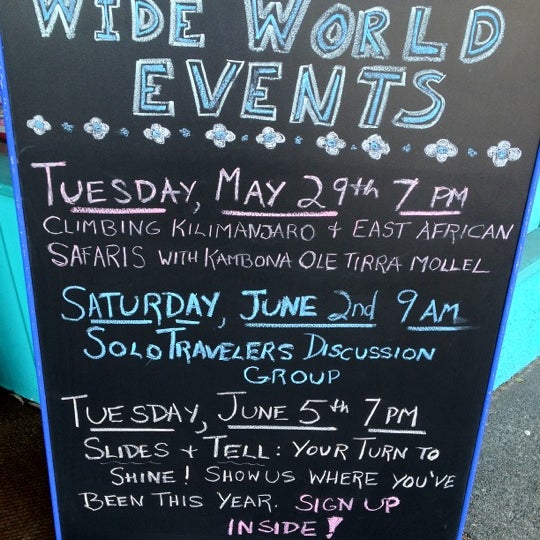 WIDE WORLD
EVENTS
TUESDAY, MAY 29th 7 PM
CLIMBING KILIMANJARO + EAST AFRICAN
SAFARIS WITH KAMBONA OLE TIRRA MOLLEL
SATURDAY, JUNE 2nd 9 AM
SOLO TRAVELERS DISCUSSION
GROUP
TUESDAY, JUNE 5th 7PM
SLIDES + TELL: YOUR TURN TO
SHINE! SHOW US WHERE YOU'VE
BEEN THIS YEAR. SIGN UP
INSIDE!